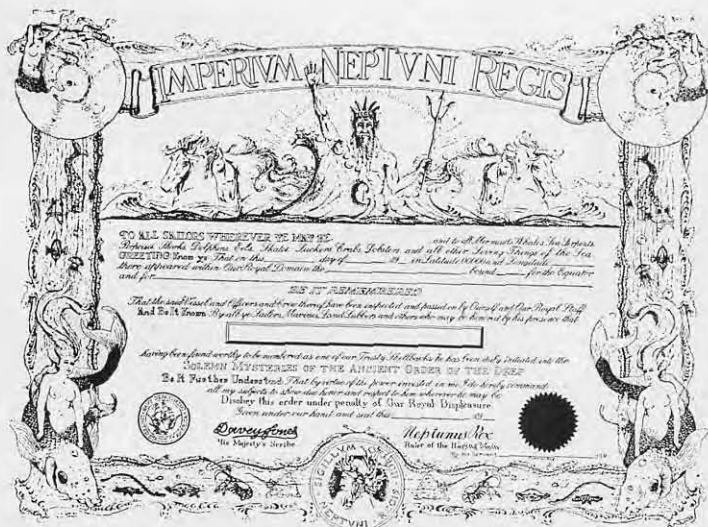 IMPERIVM NEPTVNI REGIS
TO ALL SAILORS WHEREVER YE MAY BE, and to all Mermaids, Whales, Sea Serpents,
Porpoises, Sharks, Dolphins, Eels, Skates, Suckers, Crabs, Lobsters, and all other Living Things of the Sea
GREETING Know ye: That on this day of 19 in Latitude 00000 and Longitude
there appeared within Our Royal Domain the bound for the Equator
and for
BE IT REMEMBERED
That the said Vessel and Officers and Crew thereof have been inspected and passed on by Ourself and Our Royal Staff
And Be It Known: By all ye Sailors, Marines, Land Lubbers and others who may be honored by his presence that
having been found worthy to be numbered as one of our Trusty Shellbacks he has been duly initiated into the
SOLEMN MYSTERIES OF THE ANCIENT ORDER OF THE DEEP
Be It Further Understood: That by virtue of the power invested in me I do hereby command
all my subjects to show due honor and respect to him wherever he may be
Disobey this order under penalty of Our Royal Displeasure
Given under our hand and seal this 19
Davey Jones
His Majesty's Scribe
Neptunus Rex
Ruler of the Raging Main
SIGILLVM NEPTVNI